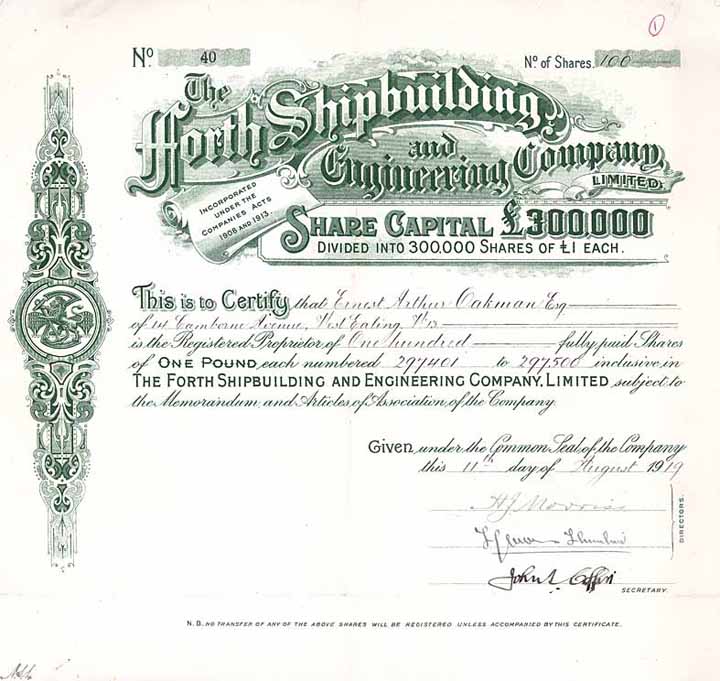 1
No 40
No. of Shares. 100
The
Forth Shipbuilding
and
Engineering Company,
LIMITED.
INCORPORATED
UNDER THE
COMPANIES ACTS
1908 AND 1913.
SHARE CAPITAL £300,000
DIVIDED INTO 300,000 SHARES OF £1 EACH.
This is to Certify that Ernest Arthur Oakman Esq
of 14 Camborne Avenue, West Ealing W.13
is the Registered Proprietor of One hundred fully paid Shares
of ONE POUND each numbered 297401 to 297,500 inclusive in
THE FORTH SHIPBUILDING AND ENGINEERING COMPANY, LIMITED, subject to
the Memorandum and Articles of Association of the Company.
Given under the Common Seal of the Company
this 11th day of August 1919
DIRECTORS.
SECRETARY.
N.B. NO TRANSFER OF ANY OF THE ABOVE SHARES WILL BE REGISTERED UNLESS ACCOMPANIED BY THIS CERTIFICATE.